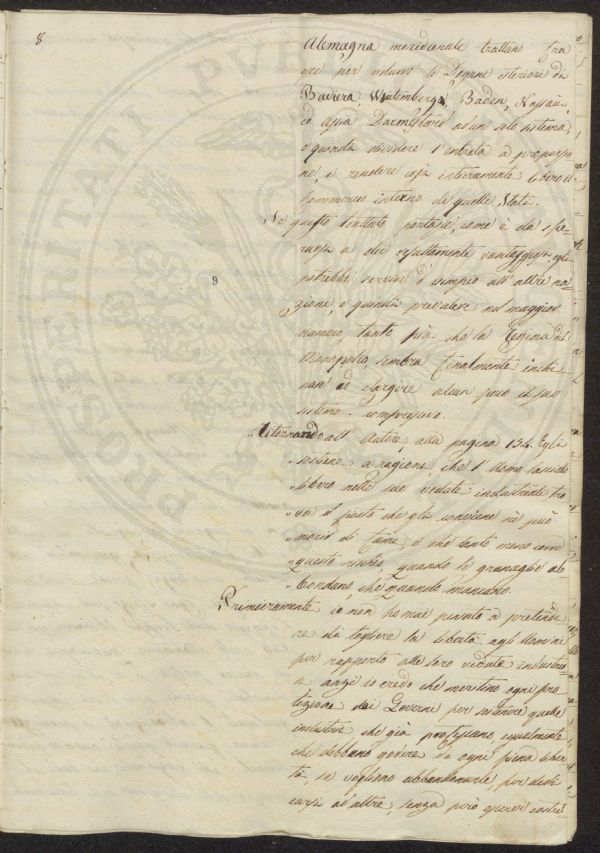 8
Alemagna meridionale trattano fra
essi per ridurre le Dogane esteriori di
Baviera, Wirtemberga, Baden, Nassau,
ed Assia Darmestard ad un solo sistema,
e quindi dividere l'entrata a proporzio
ne, e rendere così interamente libero il
commercio interno di quelli Stati.
Se questo trattato portasse, come è da spe
rarsi a dei resultamenti vantaggiosi, egli
potrebbe servire d'esempio all'altre na
zioni, e quindi prevalere nel maggior
numero, tanto più che la Regina del
Monopolio, sembra finalmente inchi
nar ad elargire alcun poco il suo
sistema compressivo.
9
Ritornando all'Autore, alla pagina 134. Egli
sostiene a ragione, che l'Uomo lasciato
libero nelle sue vedute industriali tro
va il posto che gli conviene nè può
morir di fame, e che tanto meno corre
questo rischio, quando le granaglie ab
bondano, che quando mancano.
Primieramente io non ho mai pensato a preten
re di togliere la libertà agli Uomini
per rapporto alle loro vedute industria
anzi io credo che meritino ogni pro
tezione dai Governi per sostenere quelle
industrie che già professano, egualmente
che debbano godere di ogni piena liber
tà, se vogliono abbandonarle, per dedi
carsi ad altre, senza però esservi costret